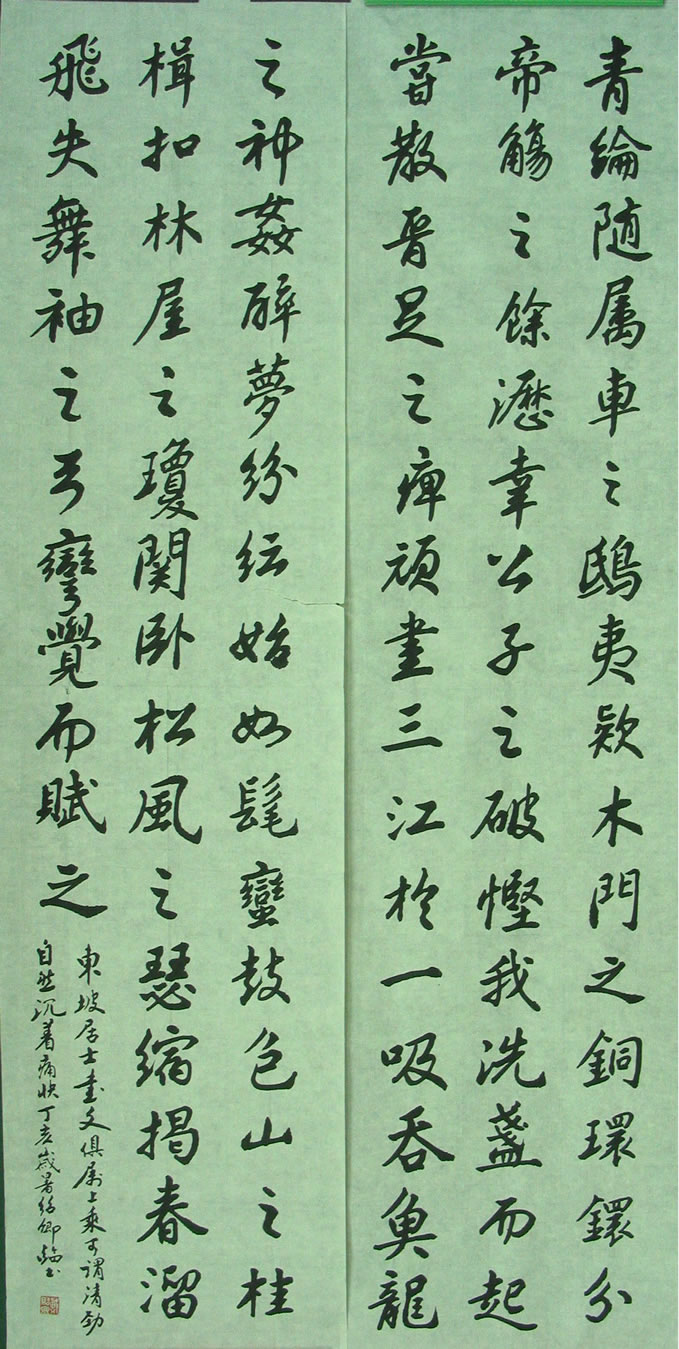 青綸随属車之鴟夷款木門之銅環鐶分
帝觴之餘瀝幸公子之破慳我洗盞而起
嘗散足之痺頑盡三江於一吸吞魚龍
之神姦醉夢紛紜始如髦蠻鼓包山之桂
楫扣林屋之瓊関卧松風之瑟縮揭春溜
飛失舞袖之弓彎覺而賦之
東坡居士書文俱属上乘可謂清勁
自然沉着痛快丁亥歲暑紹卿書